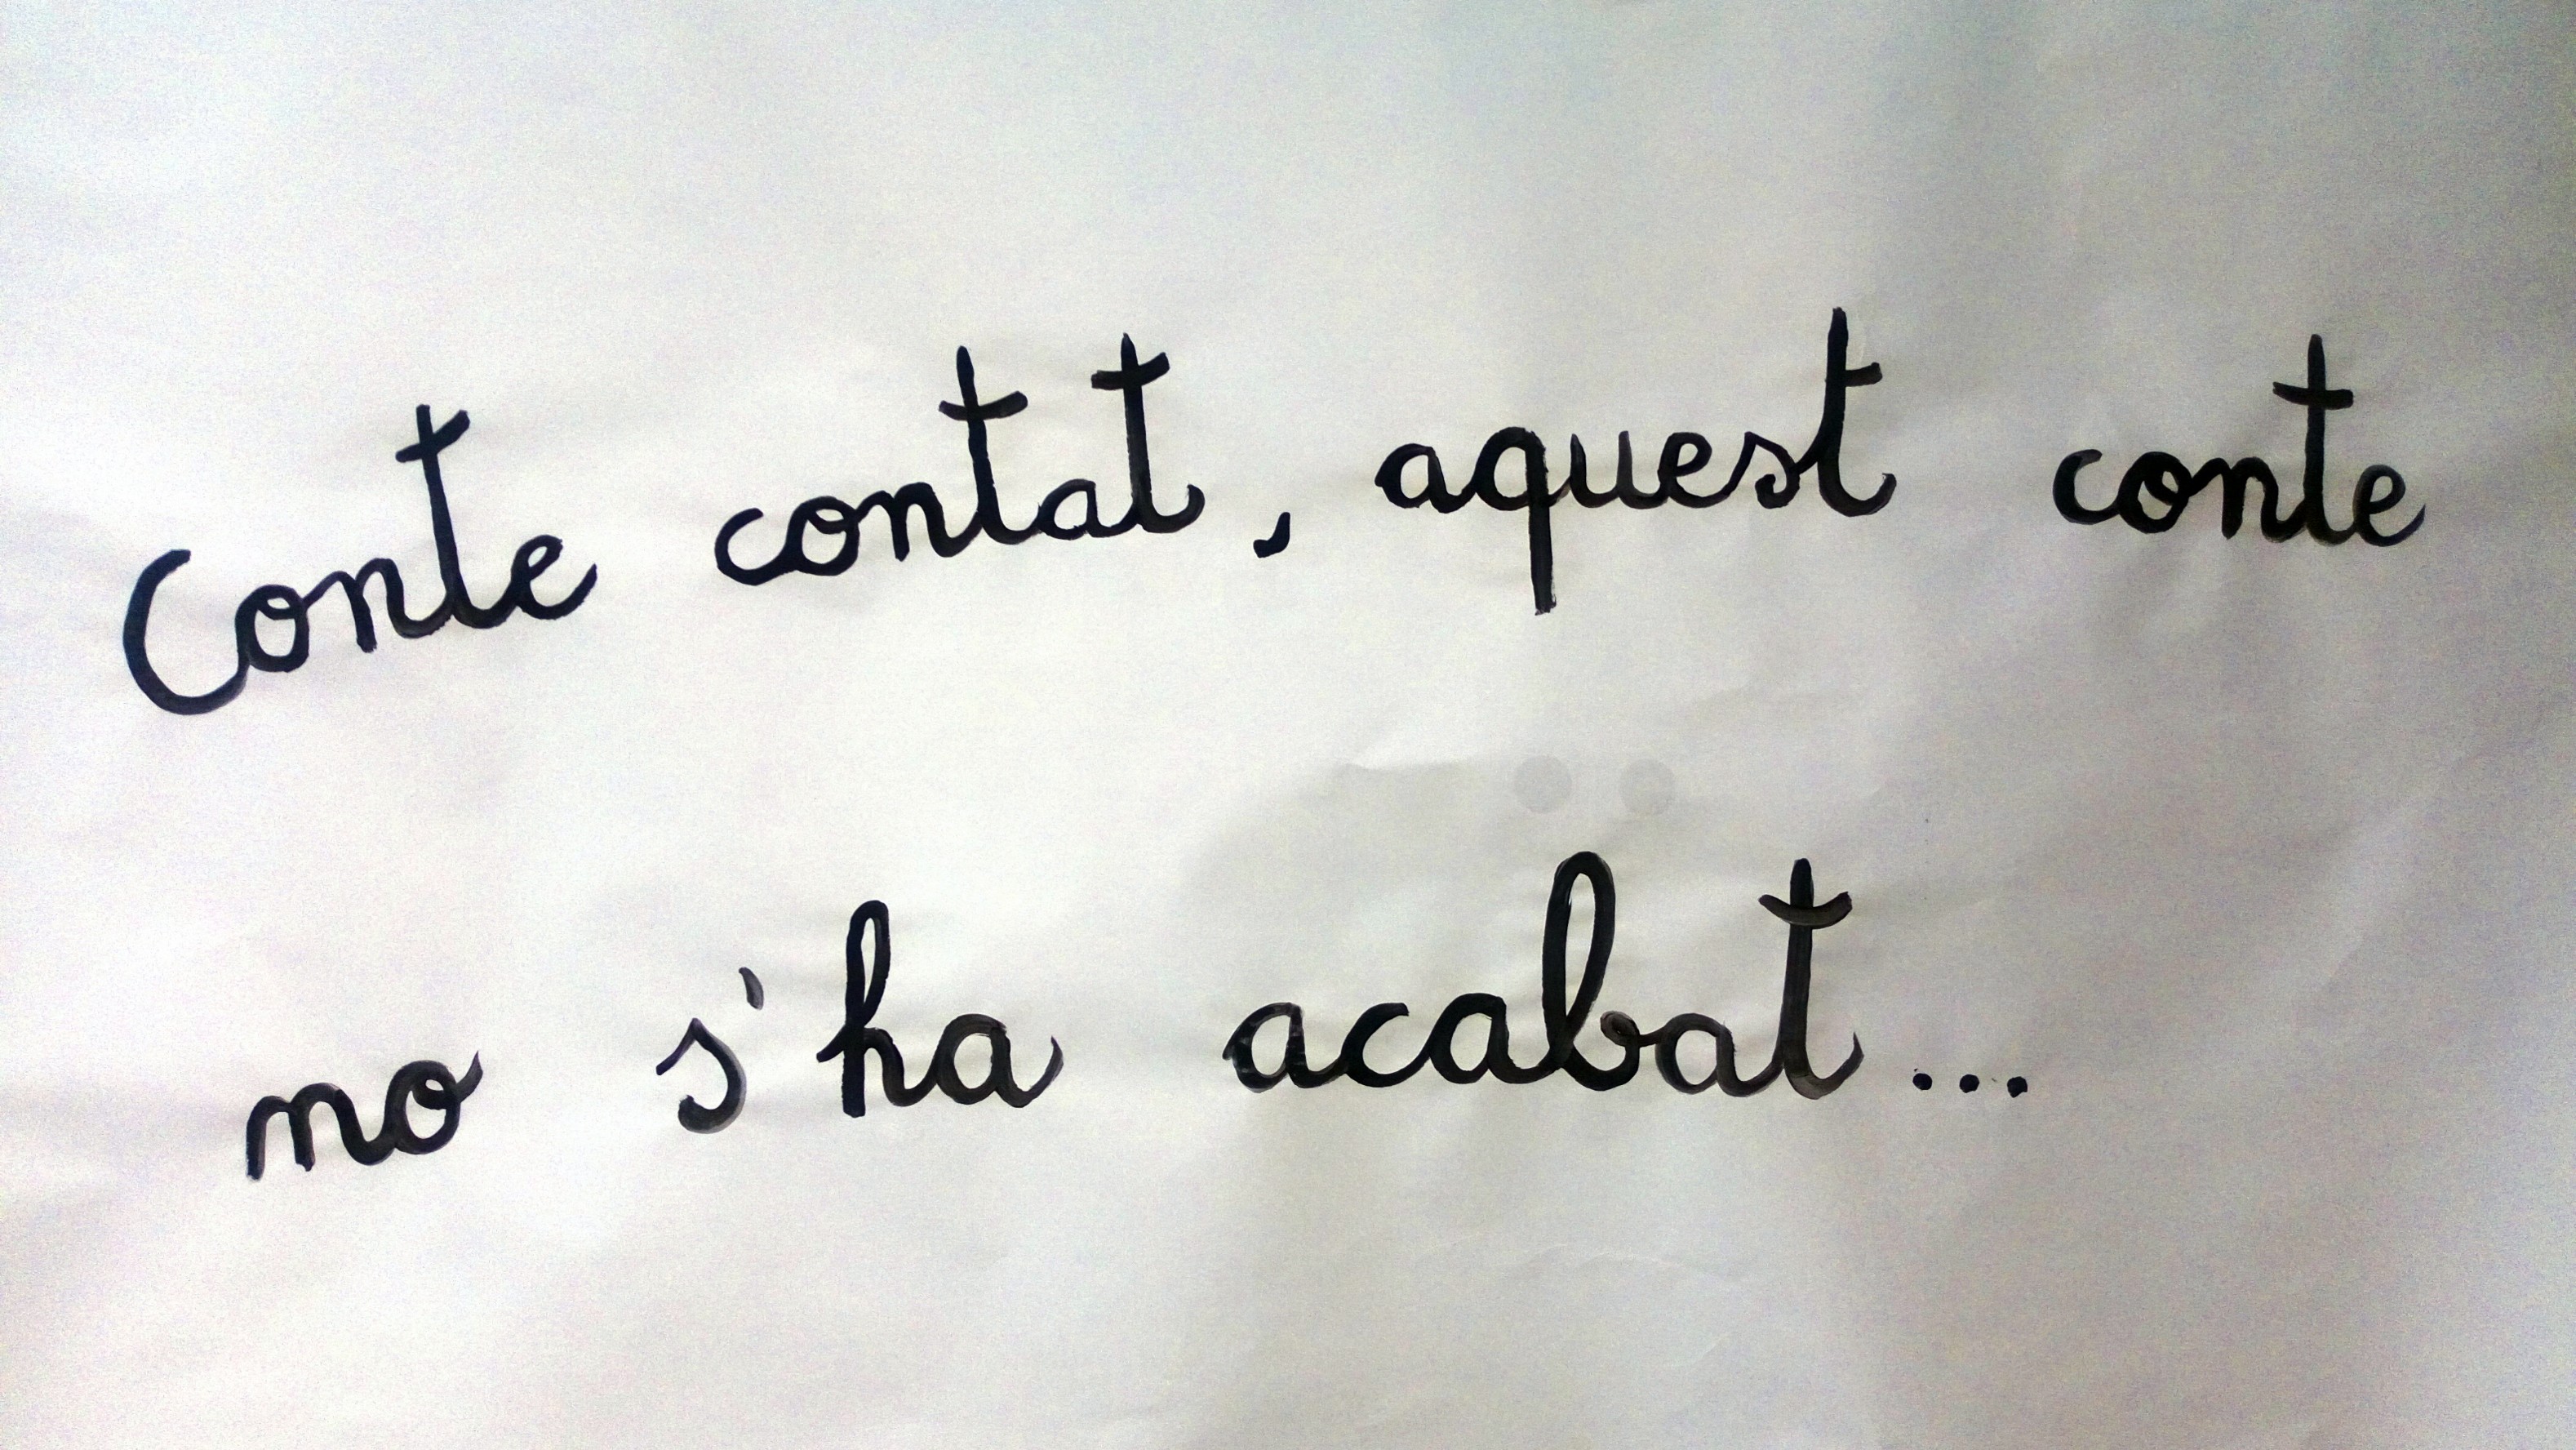 Conte contat, aquest conte
no s'ha acabat...